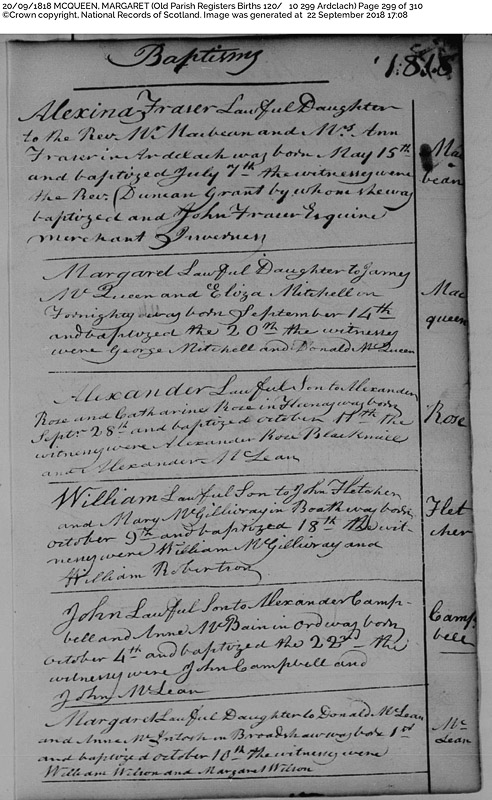 20/09/1818 MCQUEEN, MARGARET (Old Parish Registers Births 120/ 10 299 Ardclach) Page 299 of 310
©Crown copyright, National Records of Scotland. Image was generated at 22 September 2018 17:08
Baptisms 1818
Alexina Fraser Lawful Daughter
to the Rev. Mr. Macbean and Mrs. Ann
Fraser in Ardclach was born May 15th
and baptized July 7th the witnesses were
the Rev. Duncan Grant by whom she was
baptized and John Fraser Esquire
merchant Inverness
Mac
bean
Margaret Lawful Daughter to James
Mc Queen and Eliza Mitchell in
was born September 14th
and baptized the 20th the witnesses
were George Mitchell and Donald McQueen
Mac
queen
Alexander Lawful Son to Alexander
Rose and Catharine Rose in was born
Septr. 28th and baptized october 11th the
witnesses were Alexander Rose
and Alexander McLean
Rose
William Lawful Son to John Fletcher
and Mary McGillivray in Boath was born
october 9th and baptized 18th the wit-
nesses were William McGillivray and
William Robertson
Flet
cher
John Lawful Son to Alexander Camp-
bell and Anne McBain in ord was born
october 4th and baptized the 22nd the
witnesses were John Campbell and
John McLean
Camp
bell
Margaret Lawful Daughter to Donald McLean
and Anne McIntosh in Broadshaw was 1st
and baptized october 10th the witnesses were
William Wilson and Margaret Wilson
Mc
Lean